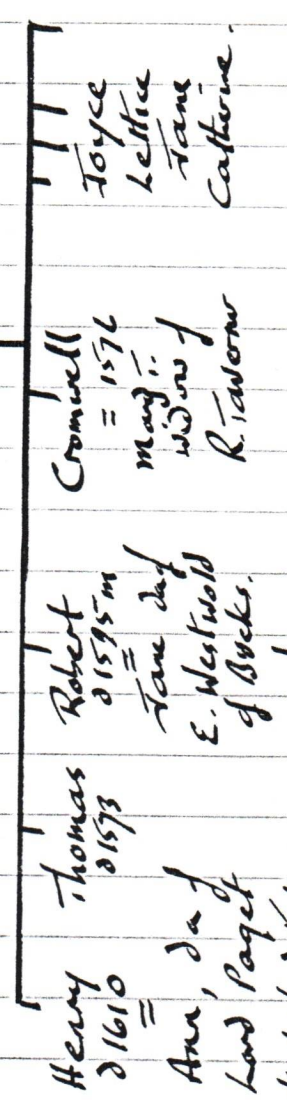 Henry
d 1610
=
Ann, da of
Lord Paget
Thomas
d 1573
Robert
d 1595 m
=
Jane da of
E. Westwold
of Bucks.
Cromwell
= 1576
Mary
widow of
R. Taverner
Joyce
Lettice
Jane
Catherine.